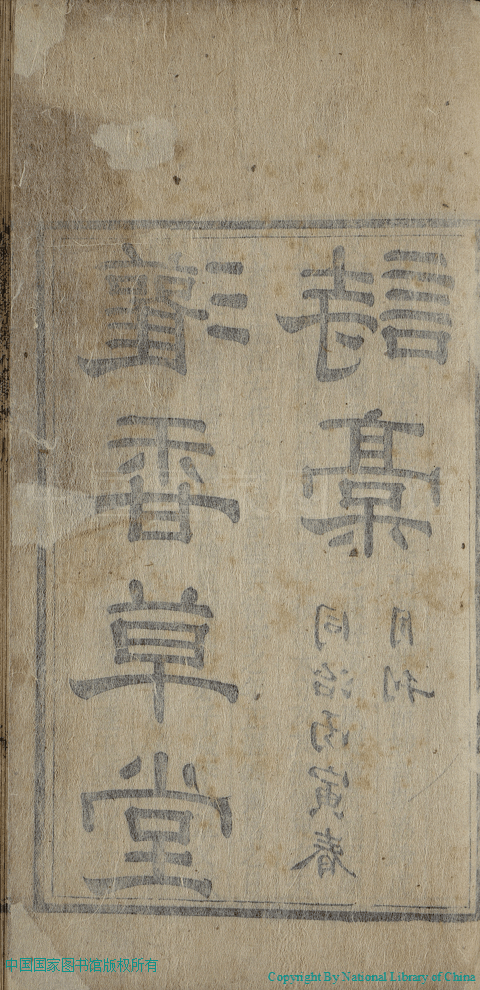 香草堂
詩稾
同治丙寅春
月刊
中国国家图书馆版权所有
Copyright By National Library of China